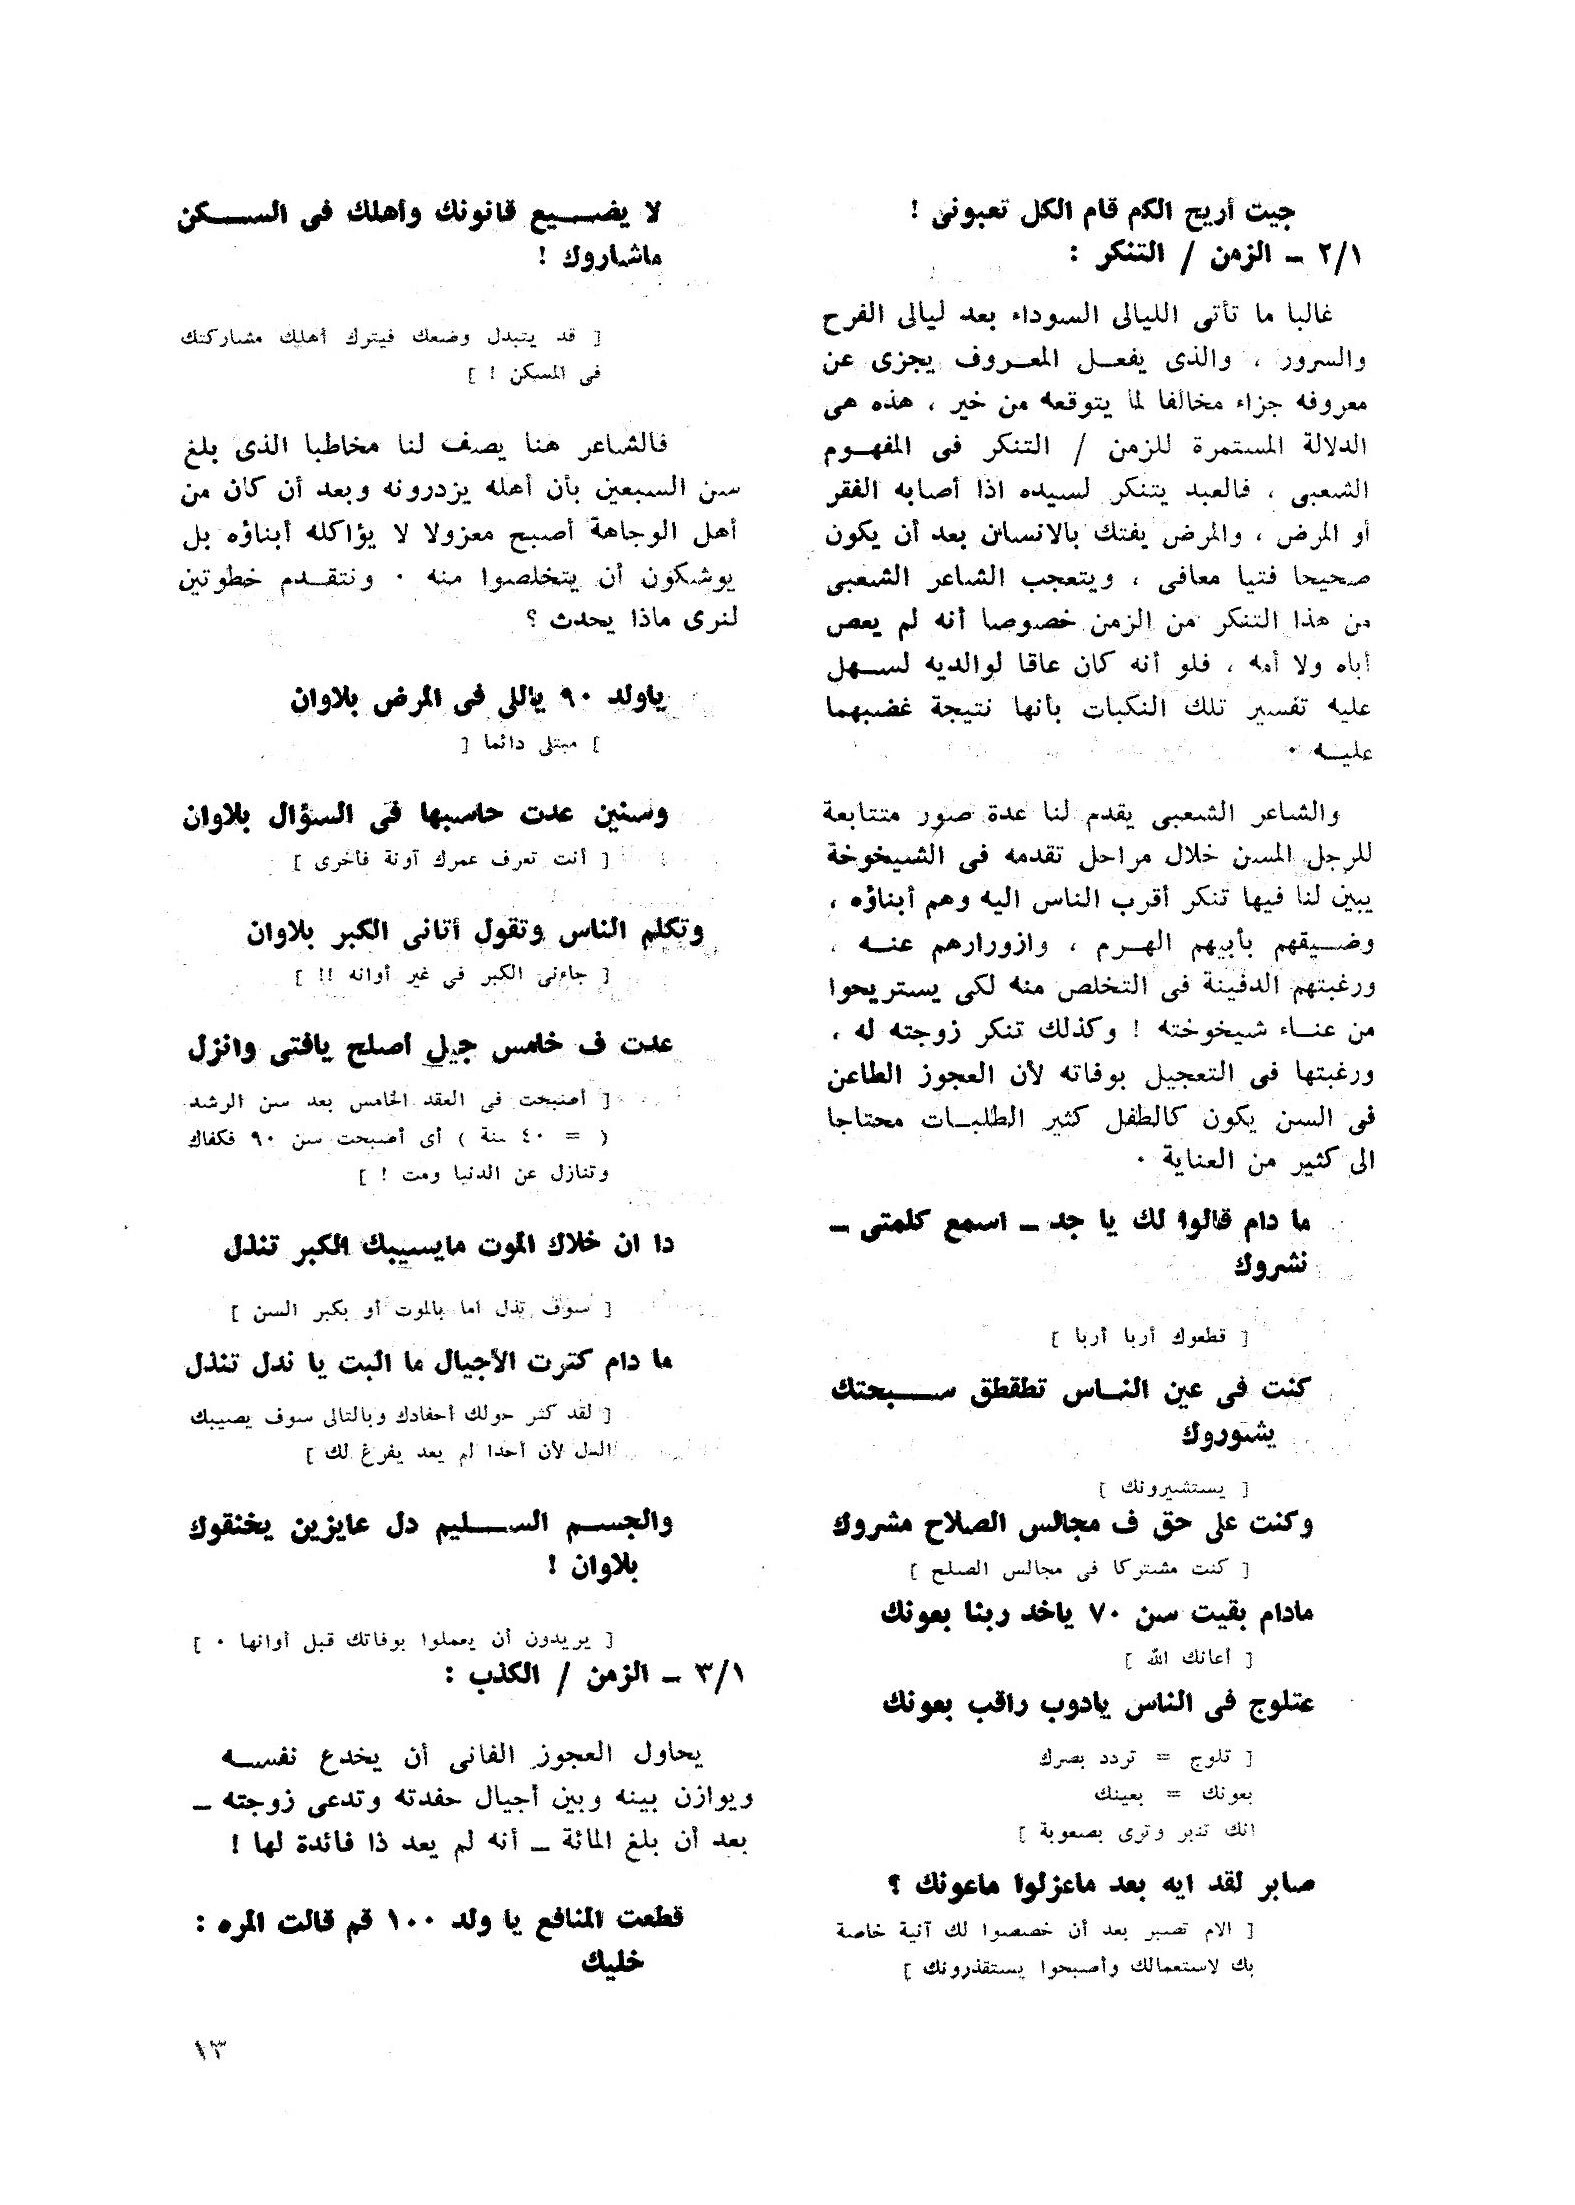 جيت أريح الكم قام الكل تعبونى !
٢/١ – الزمن / التنكر :
غالبا ما تأتى الليالى السوداء بعد ليالى الفرح
والسرور ، والذى يفعـل المعـروف يجزى عن
معروفه جزاء مخالفا لما يتوقعه من خير ، هذه هى
الدلالة المستمرة للزمن / التنكر فى المفهـوم
الشعبى ، فالعبد يتنكر لسيده اذا أصابه الفقر
أو المرض ، والمرض يفتك بالانسان بعد أن يكون
صحيحا فتيا معافى ، ويتعجب الشاعر الشعبى
من هذا التنكر من الزمن خصوصا أنه لم يعص
أباه ولا أمه ، فلو أنه كان عاقا لوالديه لسـهل
عليه تفسير تلك النكبات بأنها نتيجة غضبهما
عليـه ٠
والشاعر الشعبى يقدم لنا عدة صور متتابعة
للرجل المسن خلال مراحل تقدمه فى الشيخوخة
يبين لنا فيها تنكر أقرب الناس اليه وهم أبناؤه ،
وضـيقهم بأبيهم الهـرم ، وازورارهم عنـه ،
ورغبتهم الدفينة فى التخلص منه لكى يستريحوا
من عنـاء شيخوخته ! وكذلك تنكر زوجته له ،
ورغبتها فى التعجيل بوفاته لأن العجوز الطاعن
فى السن يكون كالطفل كثير الطلبـات محتاجا
الى كثير من العناية ٠
ما دام قالوا لك يا جد – اسمع كلمتى –
نشروك
[ قطعوك أربا أربا ]
كنت فى عين النـاس تطقطق سـبحتك
يشوروك
[ يستشيرونك ]
وكنت على حق ف مجالس الصلاح مشروك
[ كنت مشتركا فى مجالس الصلح ]
مادام بقيت سن ٧٠ ياخد ربنا بعونك
[ أعانك الله ]
عتلوج فى الناس يادوب راقب بعونك
[ تلوج = تردد بصرك
بعونك = بعينك
انك تدبر وترى بصعوبة ]
صابر لقد ايه بعد ماعزلوا ماعونك ؟
[ الام تصبر بعد أن خصصوا لك آنية خاصة
بك لاستعمالك وأصبحوا يستقذرونك ]
لا يضـيع قانونك وأهلك فى السـكن
ماشاروك !
[ قد يتبدل وضعك فيترك أهلك مشاركتك
فى المسكن ! ]
فالشاعر هنا يصف لنا مخاطبا الذى بلغ
سن السبعين بأن أهله يزدرونه وبعد أن كان من
أهل الوجاهة أصبح معزولا لا يؤاكله أبناؤه بل
يوشكون أن يتخلصوا منه ٠ ونتقـدم خطوتين
لنرى ماذا يحدث ؟
ياولد ٩٠ ياللى فى المرض بلاوان
[ مبتلى دائما ]
وسنين عدت حاسبها فى السؤال بلاوان
[ أنت تعرف عمرك آونة فأخرى ]
وتكلم الناس وتقول أتانى الكبر بلاوان
[ جاءنى الكبر في غير أوانه !! ]
عدت ف خامس جيل أصلح يافتى وانزل
[ أصبحت فى العقد الخامس بعد سن الرشد
( = ٤٠ سنة ) أى أصبحت سن ٩٠ فكفاك
وتنازل عن الدنيا ومت ! ]
دا ان خلاك الموت مايسيبك الكبر تنذل
[ سوف تذل اما بالموت أو بكبر السن ]
ما دام كترت الأجيال ما البت يا ندل تنذل
[ لقد كثر حولك أحفادك وبالتالى سوف يصيبك
الذل لأن أحدا لم يعد يفرغ لك ]
والجسـم السـليم دل عايزين يخنقوك
بلاوان !
[ يريدون أن يعملوا بوفاتك قبل أوانها ٠ ]
٣/١ – الزمن / الكذب :
يحاول العجوز الفانى أن يخدع نفسـه
ويوازن بينه وبين أجيال حفدته وتدعى زوجته –
بعد أن بلغ المائة – أنه لم يعد ذا فائدة لها !
قطعت المنافع يا ولد ١٠٠ قم قالت المره :
خليك
١٣